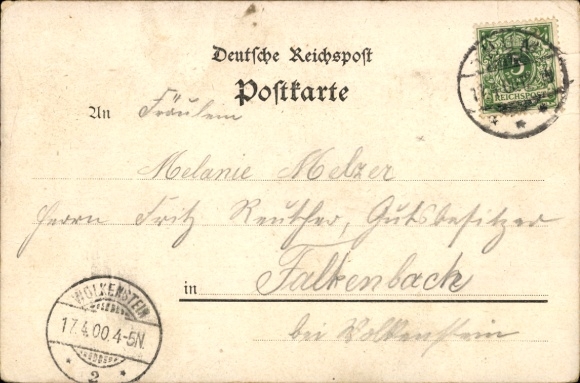 Deutsche Reichspost
Postkarte
5
REICHSPOST
An Fräulein
Melanie Melzer
Herrn Fritz Reuther, Gutsbesitzer
in Falkenbach
bei Wolkenstein
WOLKENSTEIN
17.4.00.4-5N.
2